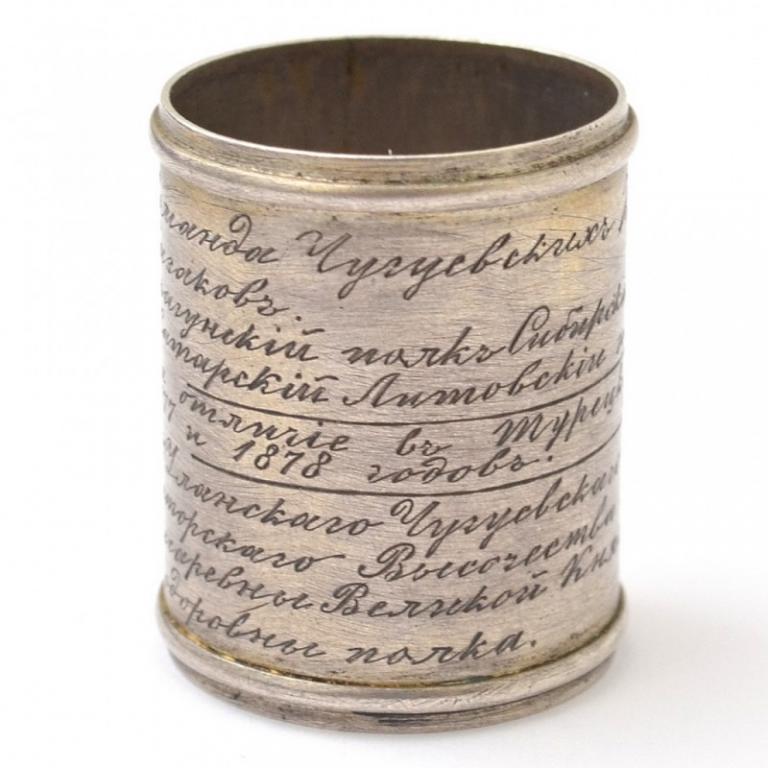 манда Чугуевскихъ
заковъ.
гунскій полкъ Сибирск
тарскій Литовскій
отличіе въ Турецк
77 и 1878 годовъ.
Уланскаго Чугуевскаго
торскаго Высочества
аревны Великой Кня
доровны полка.